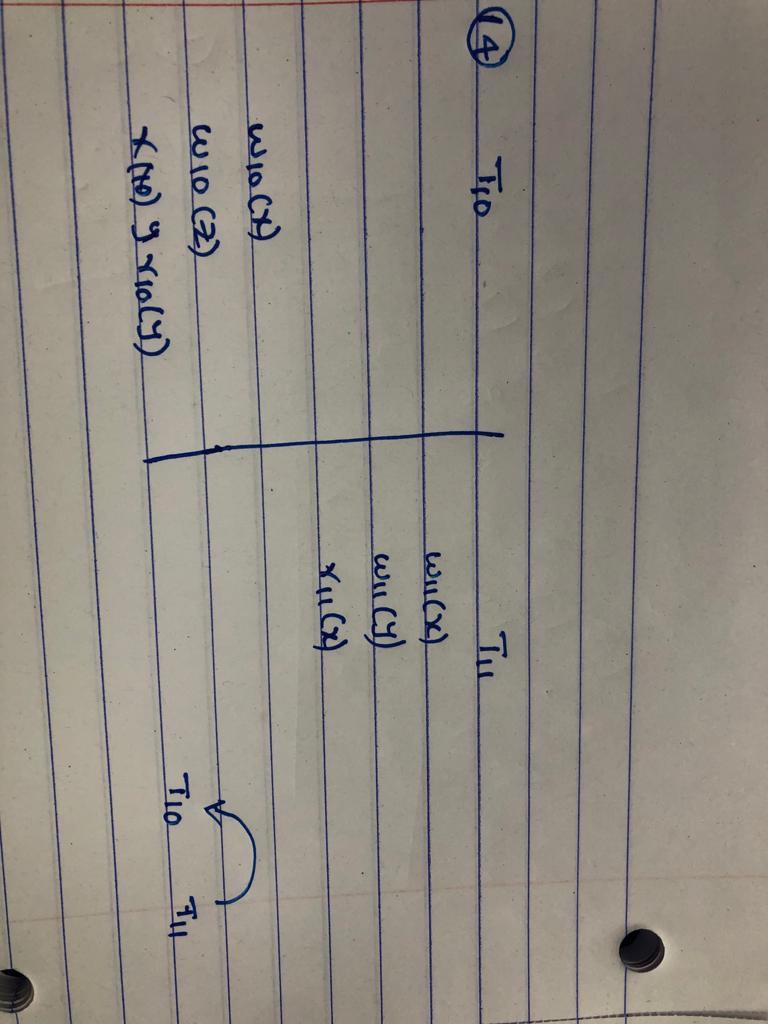 4 T10 T11
w11(x)
w11(y)
r11(x)
w10(x)
w10(z)
y r10(y)
T10 T11